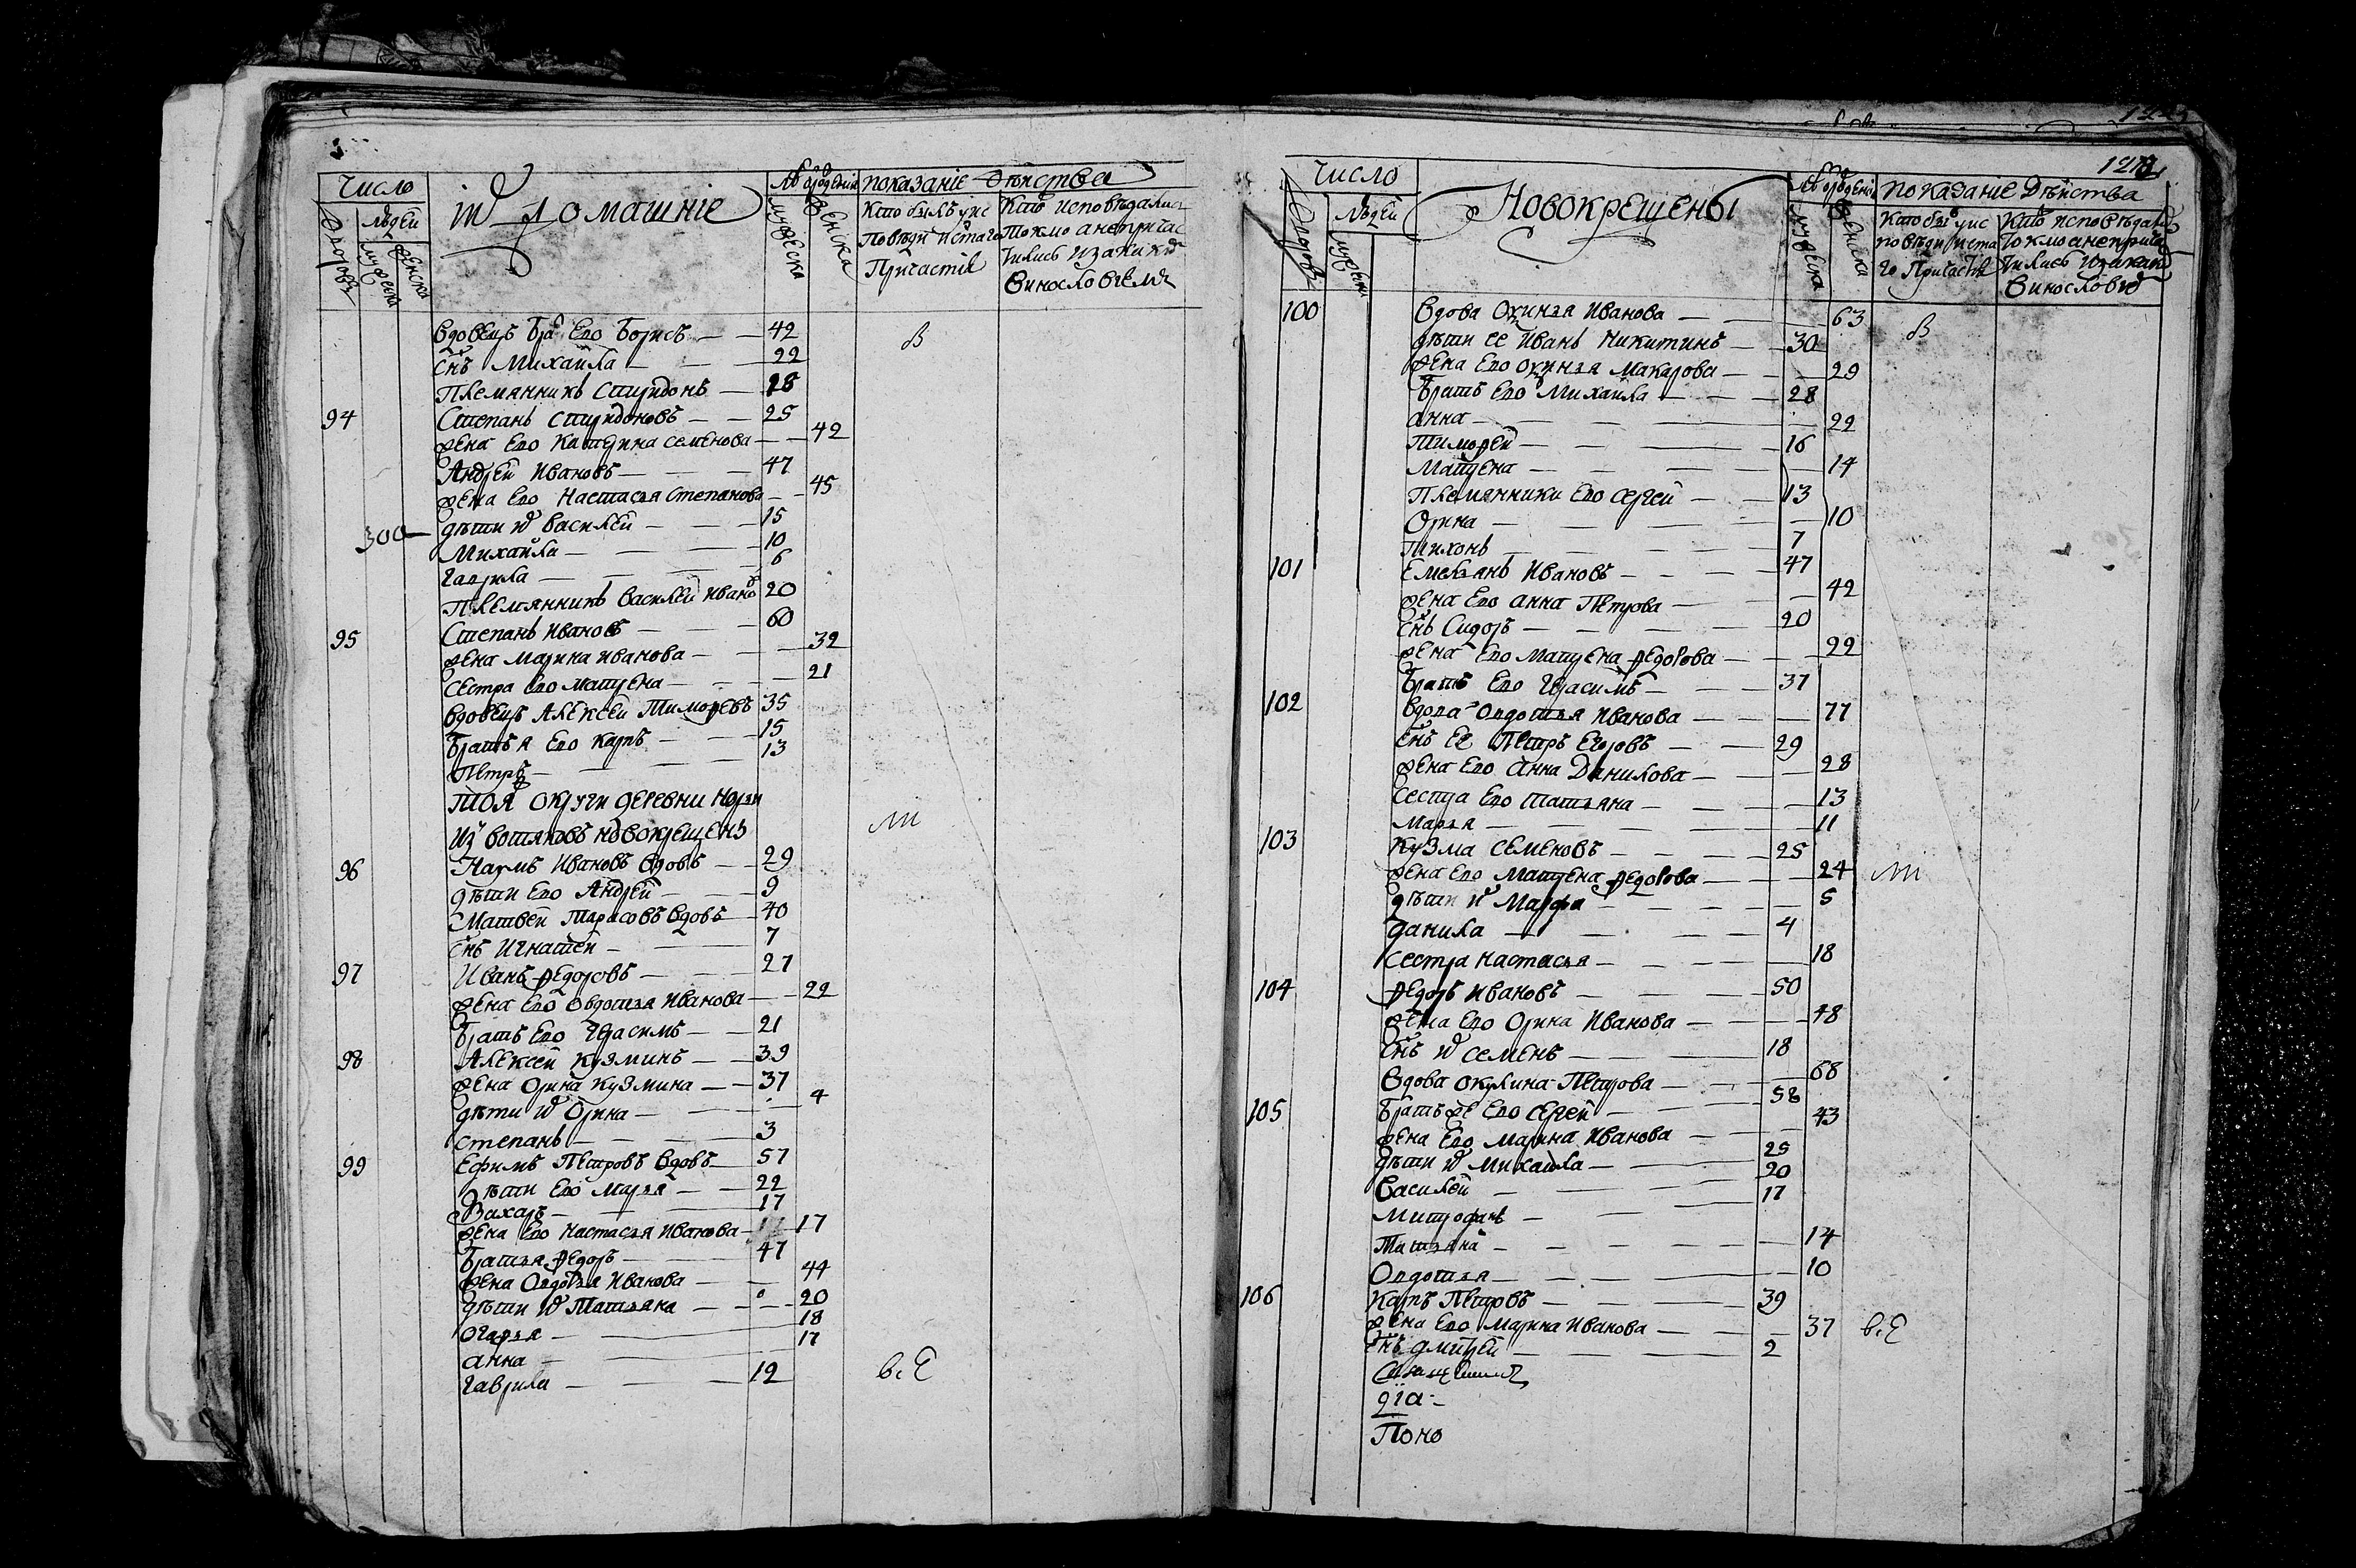 Число
людей
Дворовъ
мужеска
женска
ихъ домашніе
мужеска
женска
показаніе действа
Кто былъ у ис
поведи и с̃таго
Причастія
Кто исповедались
Токмо а неприча
тились и за какимъ
Винословіемъ
вдовецъ братъ ево Борисъ — 42
с̃нъ Михайла — 22
Племянникъ Спиридонъ — 18
94 Степанъ Спиридоновъ — 25
жена ево Катерина Семенова — 42
Андрей Ивановъ — 47
жена ево Настасья Степанова — 45
300 дети их Василей — 15
Михайла — 10
Гаврила — 6
Племянникъ Василей Ивано 20
95 Степанъ Ивановъ — 60
жена Марина Иванова — 32
сестра ево Матрена — 21
вдовецъ Алексей Тимофеевъ 35
братья ево Карпъ — 15
Петръ — 13
тоя округи деревни
Из вотяковъ новокрещенъ
96 Наумъ Ивановъ вдовъ — 29
дети ево Андрей — 9
Матвей Тарасовъ вдовъ — 40
с̃нъ Игнатей — 7
97 Иванъ Федоровъ — 27
жена ево Овдотья Иванова — 22
братъ ево Герасимъ — 21
98 Алексей Кузминъ — 39
жена Орина Кузмина — 37
дети их Орина — 4
Степанъ — 3
99 Ефимъ Петровъ вдовъ — 57
дети ево — 22
Захаръ — 17
жена ево Настасья Иванова — 17
братья Федоръ — 47
жена Овдотья Иванова — 44
дети их Татьяна — 20
Офья — 18
анна — 17
Гаврила — 12
в. Е
1278
Число
Дворовъ
людей
мужеска
Новокрещены
мужеска
женска
показаніе действа
Кто былъ у ис
поведи и с̃та
го Причастія
Кто исповедали
токмо а неприча
тились и за каки
Винословіе
100 вдова Окинья Иванова — 63
дети ее Иванъ Никитинъ — 30
жена ево Окинья Макарова — 29
братъ ево Михайла — 28
анна — 22
Тимофей — 16
Матрена — 14
Племянники ево Сергей — 13
Орина — 10
Тихонъ — 7
101 Емельянъ Ивановъ — 47
жена ево анна Петрова — 42
с̃нъ Сидоръ — 20
жена ево Матрена Федорова — 22
братъ ево Герасимъ — 37
102 вдова Овдотья Иванова — 77
с̃нъ ее Петръ Егоровъ — 29
жена ево анна Данилова — 28
сестра ево Татьяна — 13
Марья — 11
103 Кузма Семеновъ — 25
жена ево Матрена Федорова — 24
дети их Марфа — 5
данила — 4
сестра Настасья — 18
104 Федоръ Ивановъ — 50
жена ево Орина Иванова — 48
с̃нъ их Семенъ — 18
вдова Окулина Петрова — 68
105 братъ же ево Сергей — 58
жена ево Марина Иванова — 43
дети их Михайла — 25
Василей — 20
Митрофанъ — 17
Татьяна — 14
Овдотья — 10
106 Карпъ Петровъ — 39
жена ево Марина Иванова — 37
с̃нъ дмитрей — 2
в. Е
діа-
Поно